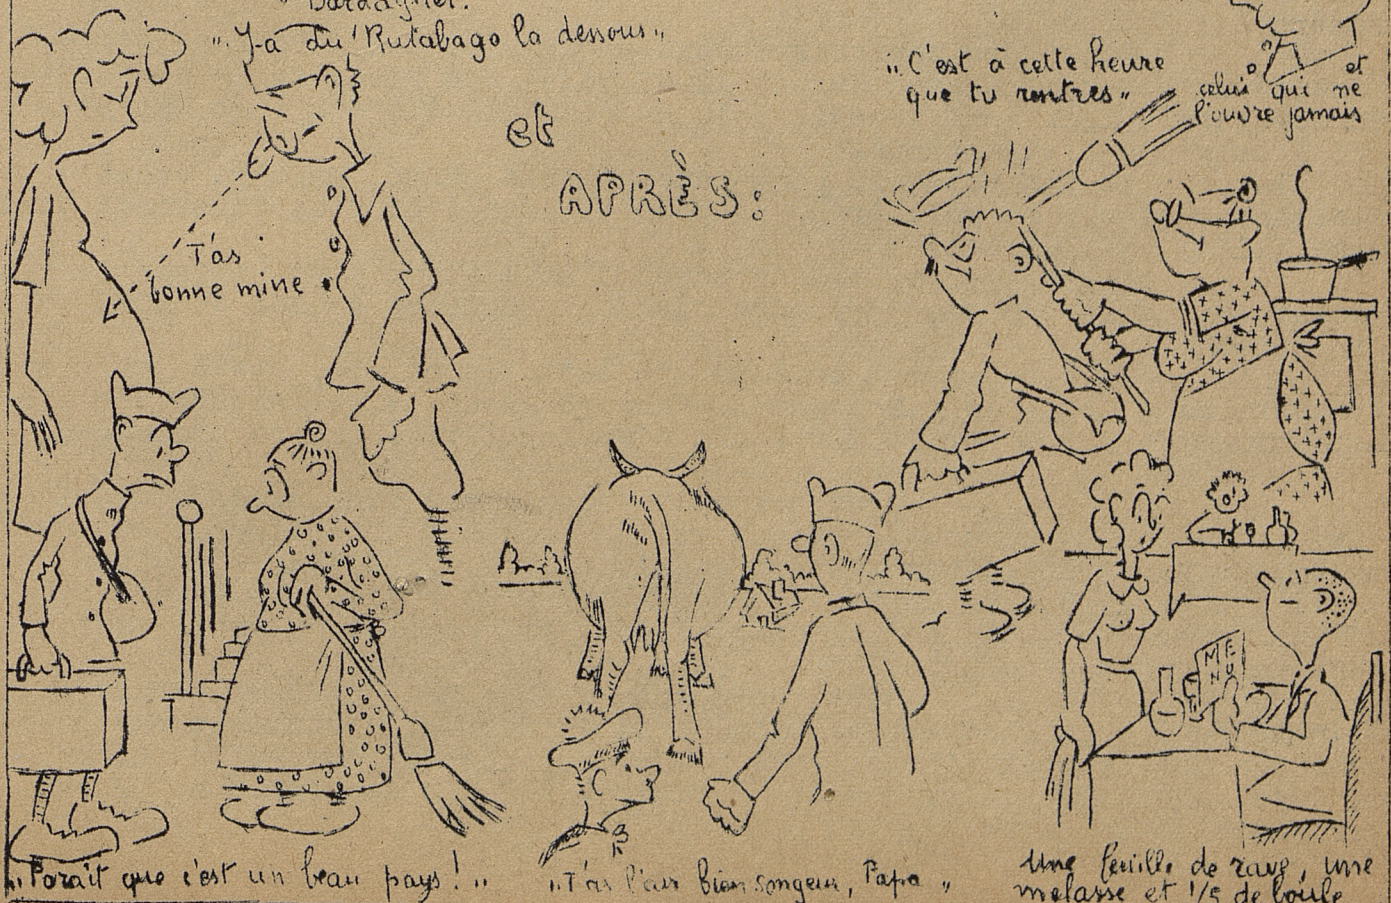 " Bardagnel.
" Y-a du 'Rutabago la dessous "
et
APRÈS:
" C'est à cette heure
que tu rentres "
et
celui qui ne
l'ouvre jamais
T'as
bonne mine
MENU
" Parait que c'est un beau pays ! "
" T'as l'air bien songeur, Papa "
Une feuille de rave, une
melasse et 1/5 de boule